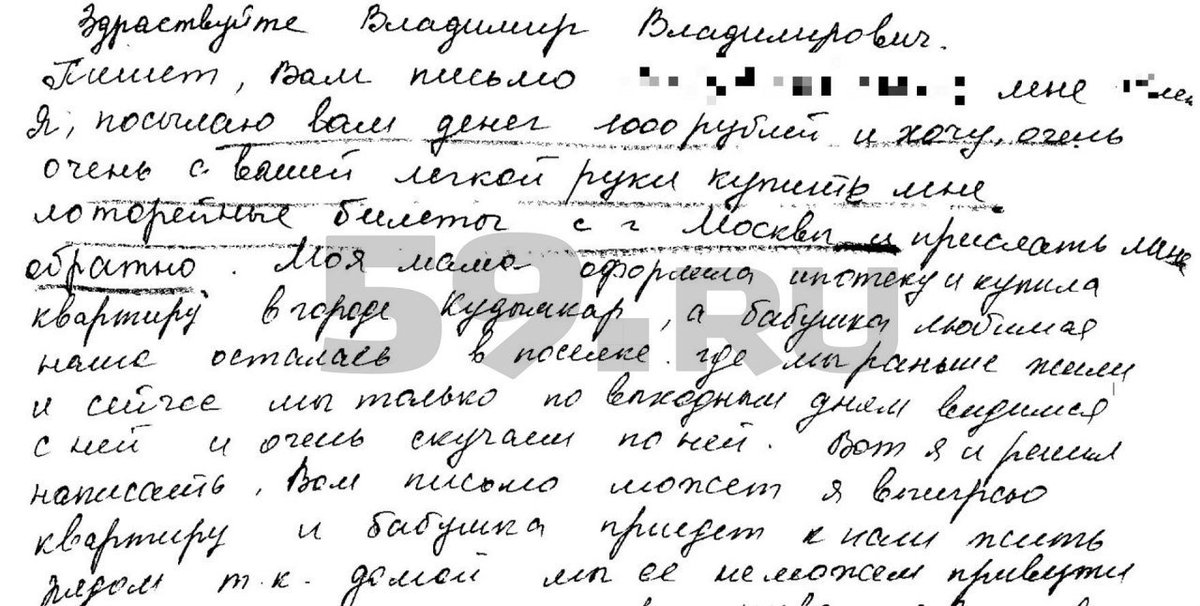 Здраствуйте Владимир Владимирович.
Пишет, Вам письмо мне
Я, посылаю вам денег 1000 рублей и хочу, очень
очень с вашей легкой руки купить мне
лоторейные билеты с г Москвы и прислать мне
обратно. Моя мама оформила ипотеку и купила
квартиру в городе Кудымкар, а бабушка любимая
наша осталась в поселке. где мы раньше жили
и сейчас мы только по выходным дням видимся
с ней и очень скучаем по ней. Вот я и решил
написать, Вам письмо может я выиграю
квартиру и бабушка приедет к нам жить
рядом т.к. домой мы её неможем привезти
59.RU